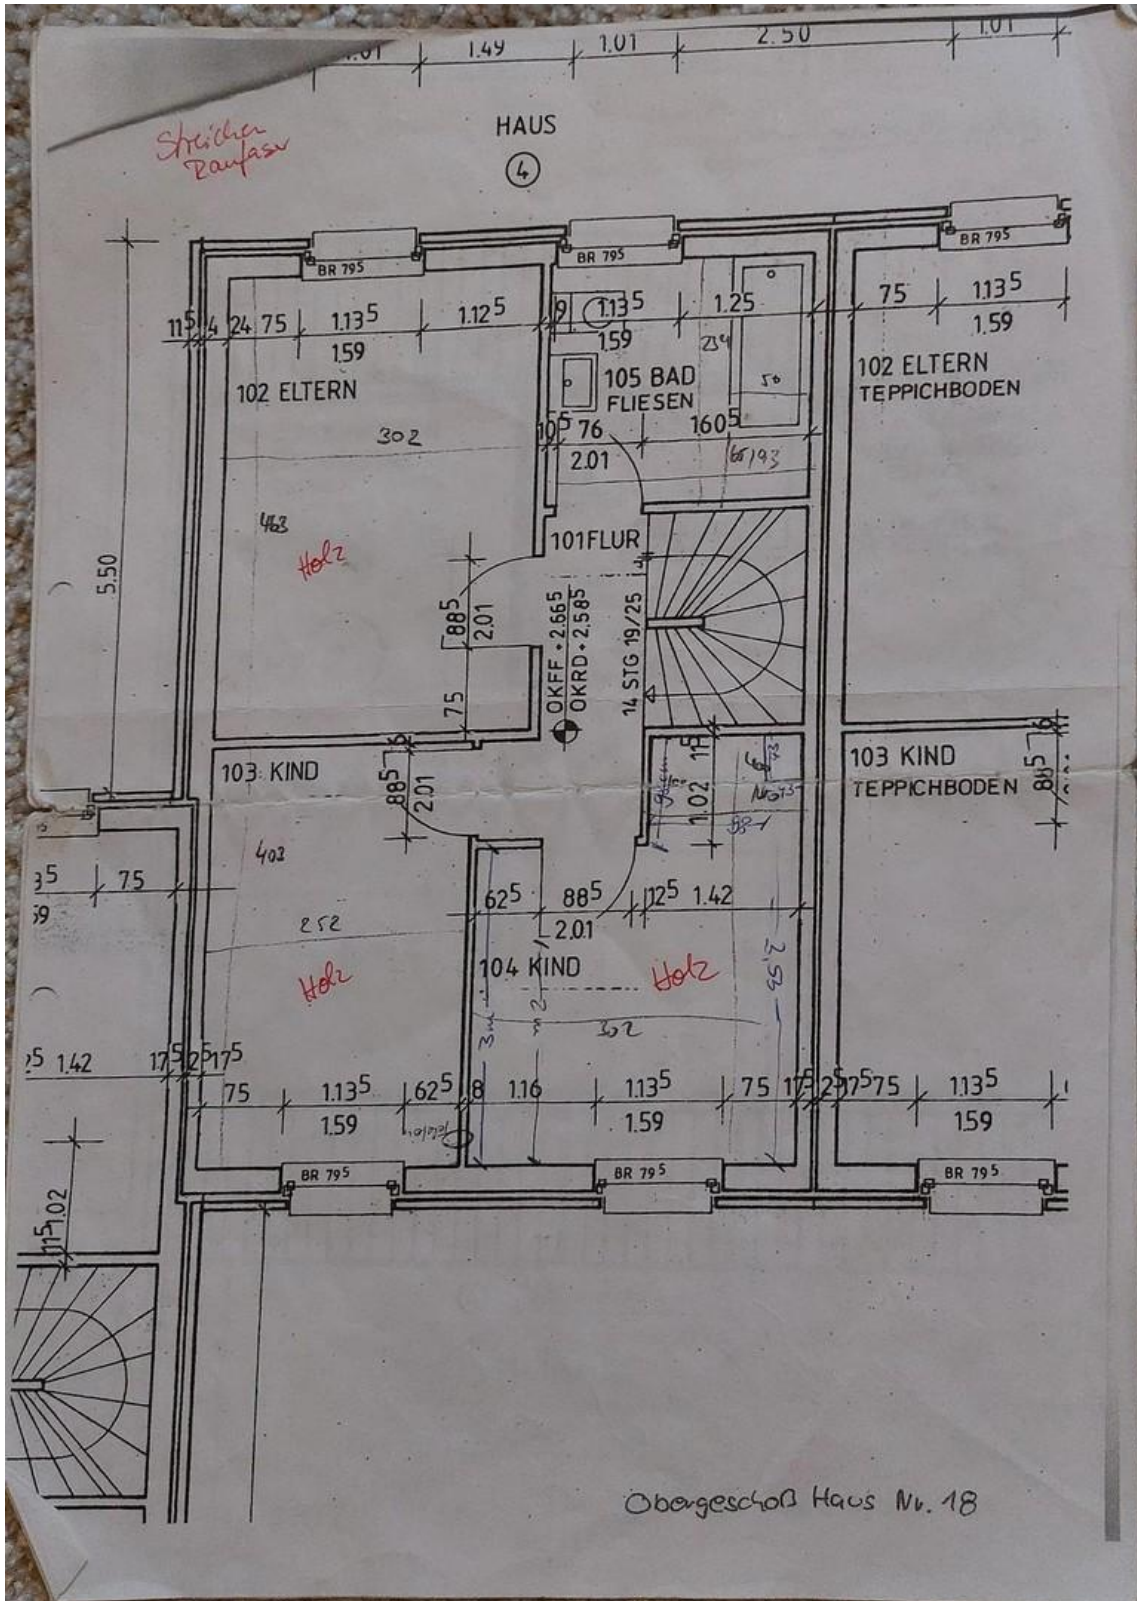 1.01
1.49
1.01
2.50
1.01
Streichen
Raufaser
HAUS
4
BR 79⁵
BR 79⁵
BR 79⁵
11⁵ 4 24 75 1.13⁵ 1.12⁵ 9 1.13⁵ 1.25 75 1.13⁵
1.59 1.59 1.59
234
102 ELTERN
105 BAD
FLIESEN
50
102 ELTERN
TEPPICHBODEN
302
10⁵ 76 160⁵
2.01
193
463
Holz
101 FLUR
5.50
88⁵
2.01
75
OKFF + 2.66⁵
OKRD + 2.58⁵
14 STG 19/25
103 KIND
6
88⁵
2.01
11⁵
1.02
98
103 KIND
TEPPICHBODEN
6
88⁵
403
75
62⁵ 88⁵ 12⁵ 1.42
2.01
252
Holz
104 KIND
Holz
302
3m
3,53
1.42 17⁵ 2⁵ 17⁵
75 1.13⁵ 62⁵ 8 1.16 1.13⁵ 75 17⁵ 2⁵ 17⁵ 75 1.13⁵
1.59 1.59 1.59
BR 79⁵
BR 79⁵
BR 79⁵
11⁵ 1.02
Obergeschoß Haus Nr. 18